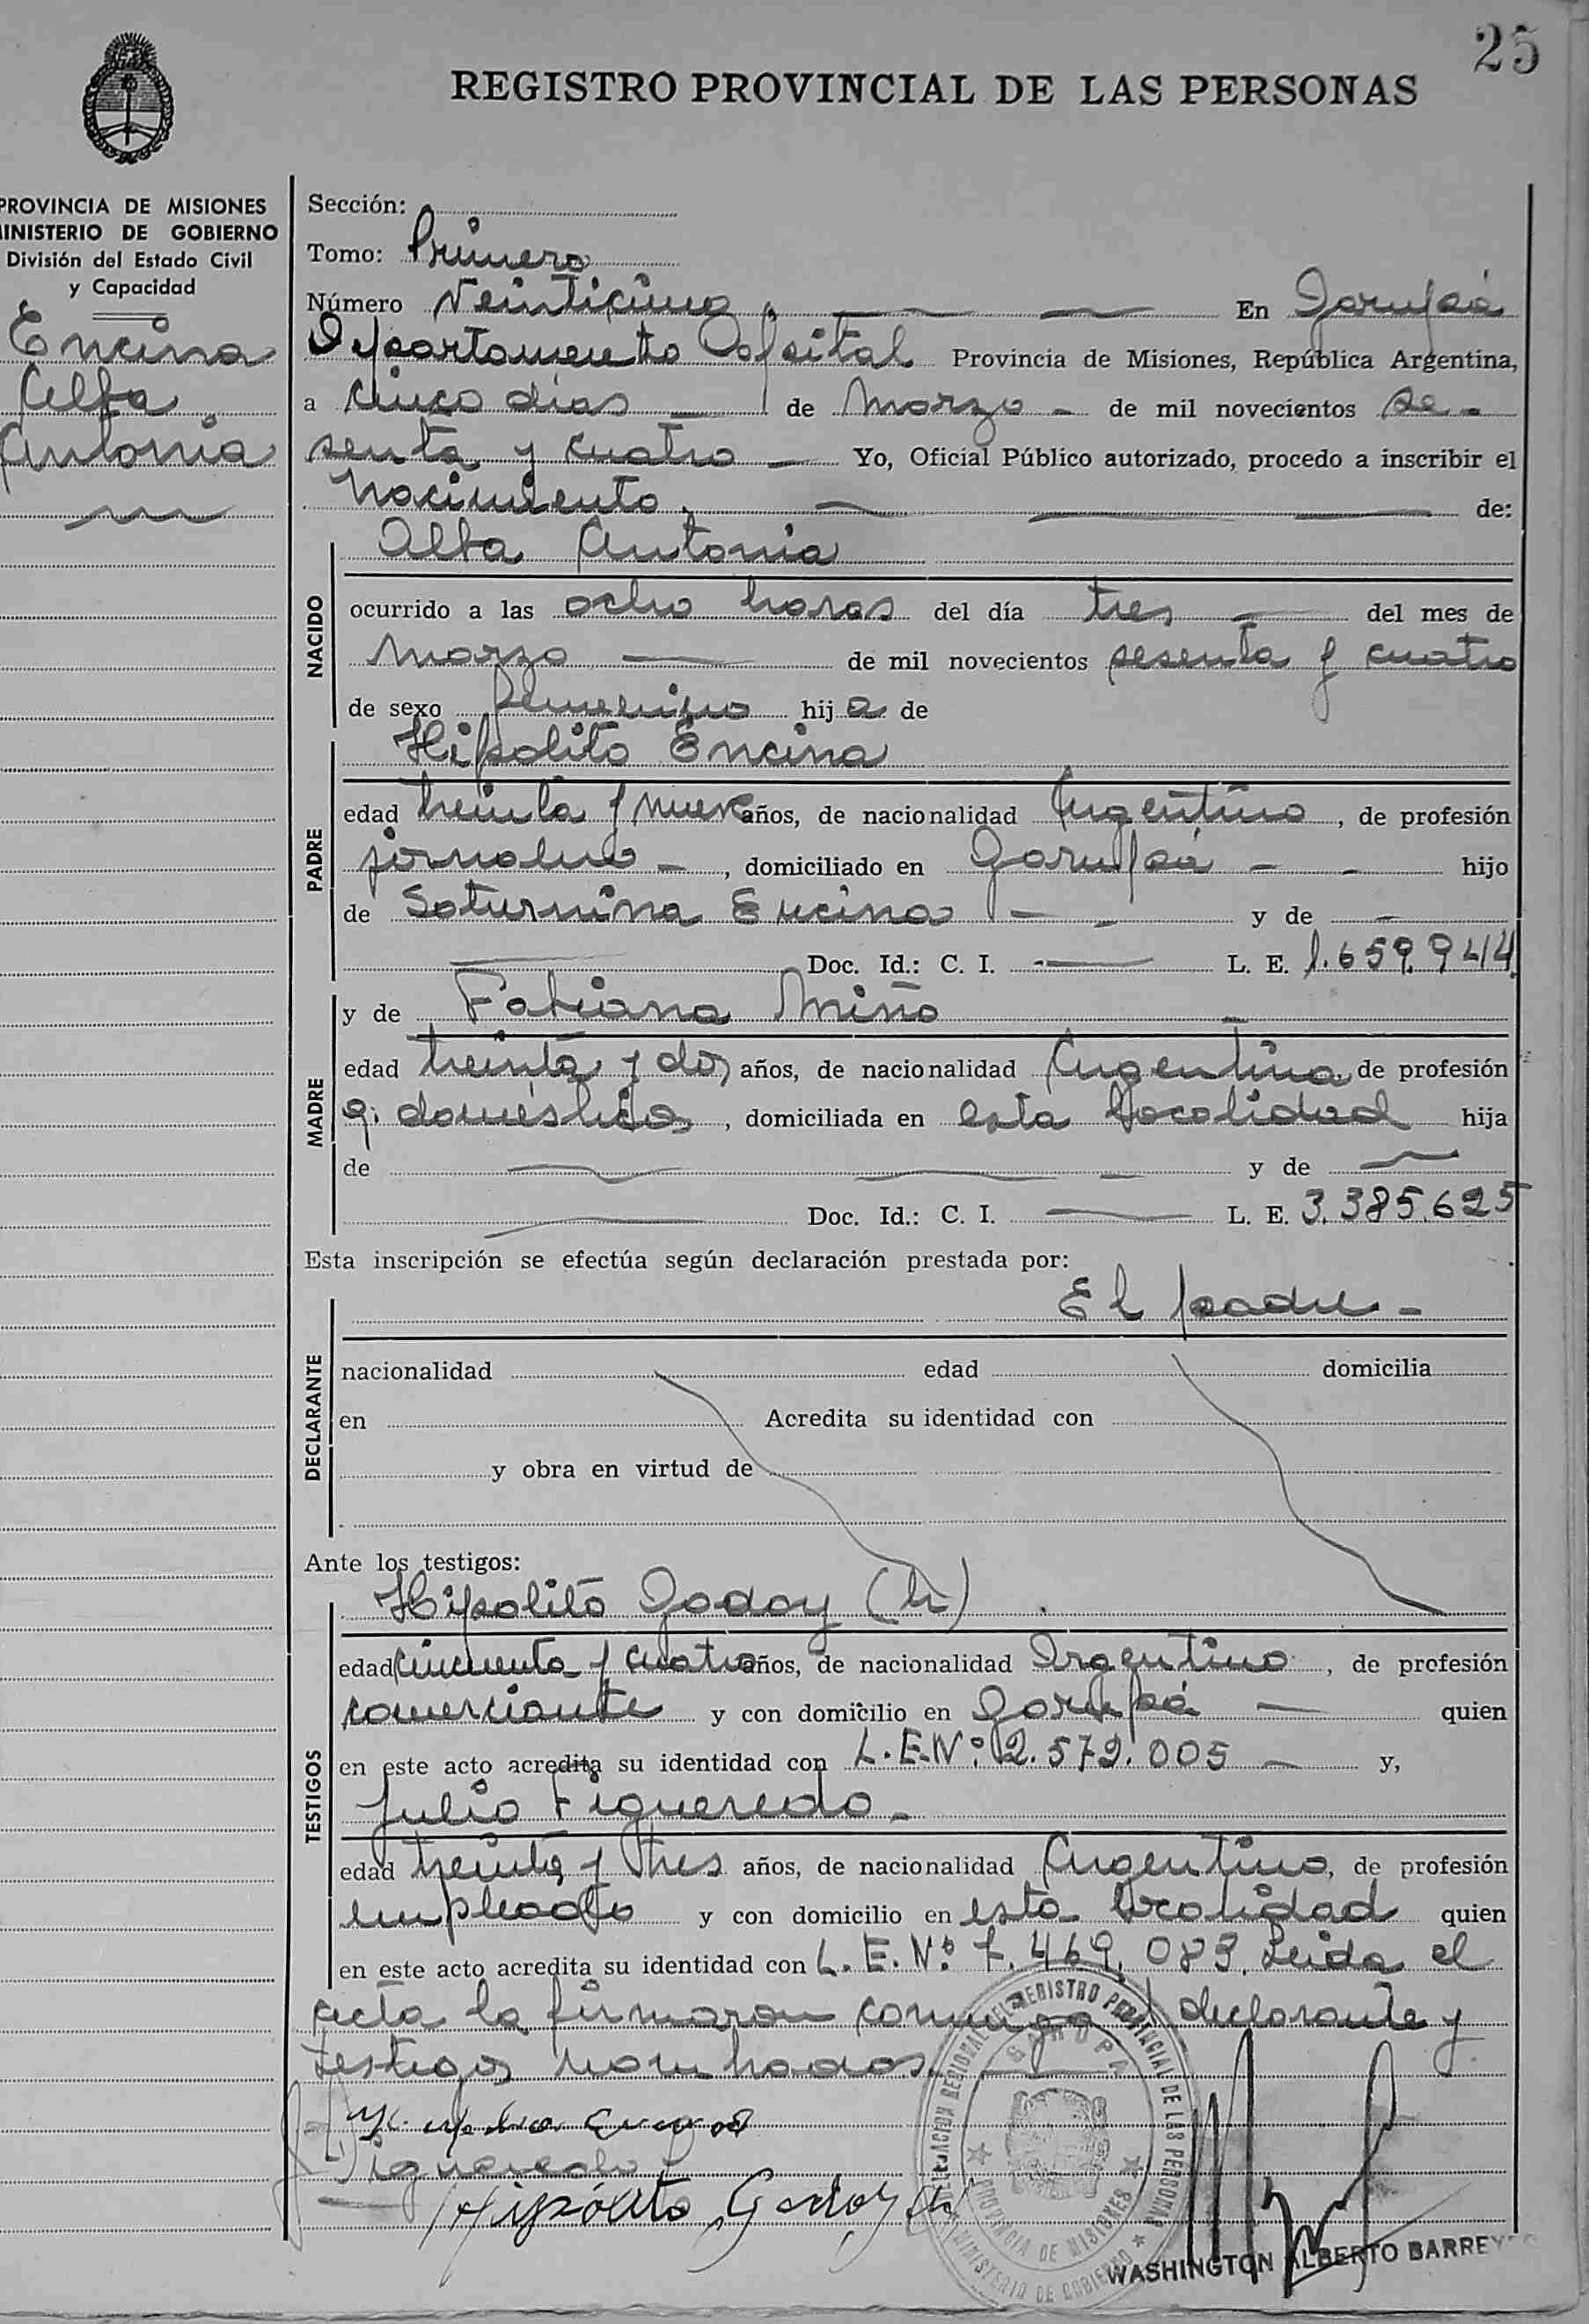 25
REGISTRO PROVINCIAL DE LAS PERSONAS
PROVINCIA DE MISIONES
MINISTERIO DE GOBIERNO
División del Estado Civil
y Capacidad
Encina
Alba
Antonia
Sección:
Tomo: Primero
Número Veinticinco En Garupá
Departamento Capital Provincia de Misiones, República Argentina,
a cinco días de Marzo de mil novecientos se-
senta y cuatro Yo, Oficial Público autorizado, procedo a inscribir el
Nacimiento de:
NACIDO
Alba Antonia
ocurrido a las ocho horas del día tres del mes de
Marzo de mil novecientos sesenta y cuatro
de sexo femenino hija de
PADRE
Hipolito Encina
edad treinta y nueve años, de nacionalidad Argentino, de profesión
jornalero, domiciliado en Garupá hijo
de Saturnina Encina y de
Doc. Id.: C. I. L. E. 1.659.944
MADRE
y de Fabiana Miño
edad treinta y dos años, de nacionalidad Argentina, de profesión
q. domésticos, domiciliada en esta localidad hija
de y de
Doc. Id.: C. I. L. E. 3.385.625
Esta inscripción se efectúa según declaración prestada por:
El padre
DECLARANTE
nacionalidad edad domicilia
en Acredita su identidad con
y obra en virtud de
Ante los testigos:
TESTIGOS
Hipolito Godoy (h)
edad cincuenta y cuatro años, de nacionalidad Argentino, de profesión
comerciante y con domicilio en Garupá quien
en este acto acredita su identidad con L.E.Nº: 2.572.005 y,
Julio Figueredo
edad treinta y tres años, de nacionalidad Argentino, de profesión
empleado y con domicilio en esta localidad quien
en este acto acredita su identidad con L. E. Nº: 7.469.083. Leida el
acta la firmaron conmigo declarante y
testigos nombrados.
Figueredo
Hipólito Godoy (h)
DELEGACION REGIONAL DEL REGISTRO PROVINCIAL DE LAS PERSONAS
GARUPA
PROVINCIA DE MISIONES
MINISTERIO DE GOBIERNO
WASHINGTON ALBERTO BARREY